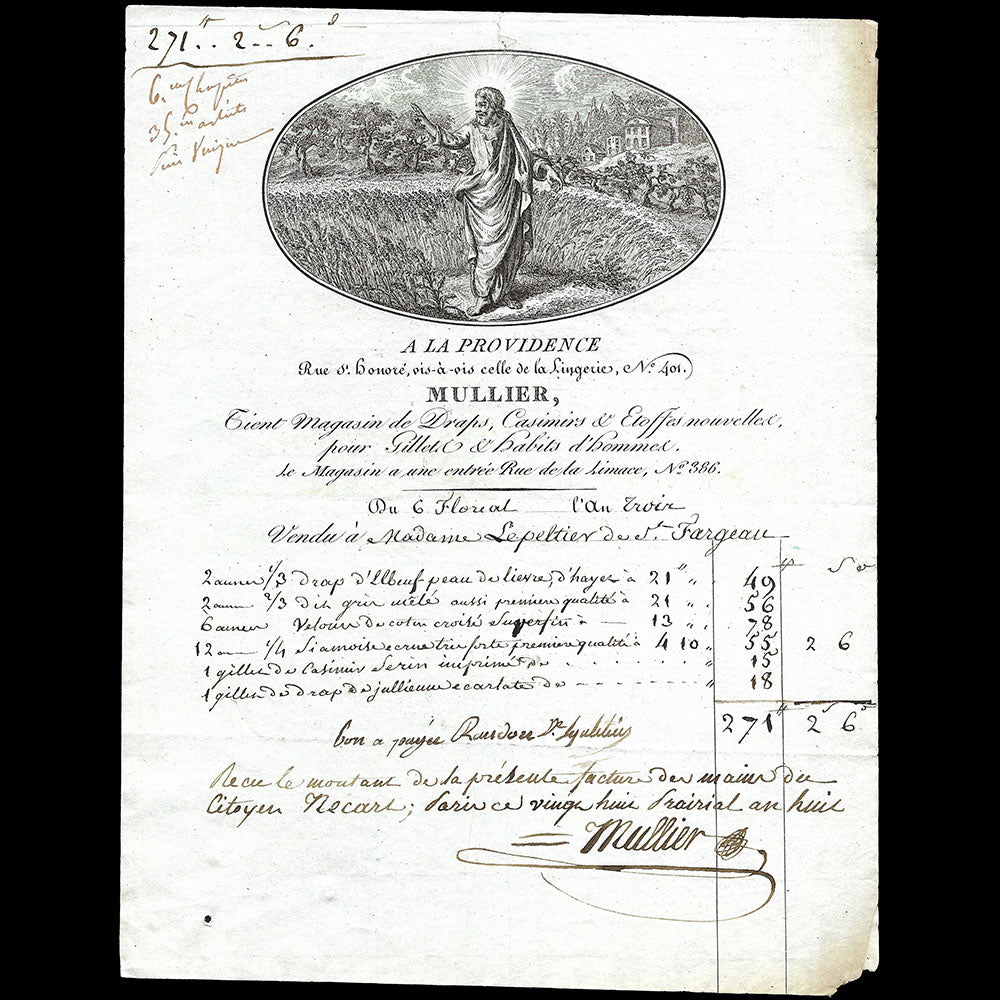 271 tt .. 2 s .. 6 d
35.
A LA PROVIDENCE
Rue St. honoré, vis-à-vis celle de la Lingerie, No. 401.
MULLIER,
Tient Magasin de Draps, Casimirs & Etoffes nouvelles,
pour Gillets & habits d'hommes.
Le Magasin a une entrée Rue de la Limace, No. 386.
Du 6 Floreal l'An Troix
Vendu à Madame Lepeltier de St. Fargeau
2 aunes 1/3 drap d'Elbeuf peau de lievre, d'hayet à 21 tt " . 49 tt s d
2 aunes 2/3 dit gris mêlé aussi premiere qualité à 21 " . 56
6 aunes Velours de coton croisé Superfin à 13 " . 78
12 au 1/4 Siamoise ecrue tres forte premiere qualité à 4 10 " 55 2 6
1 gillet de Casimir Serin imprimé de " 15
1 gillet de drap de jullienne ecarlate de " 18
271 tt 2 s 6 d
bon a payer
Recu le montant de la présente facture des mains du
Citoyen Necart; Paris ce vingt huit Prairial an huit
Mullier